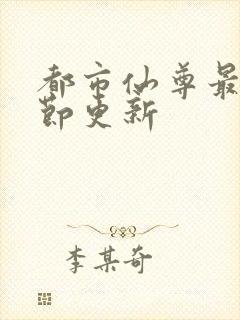 都市仙尊最
节更新
李某奇